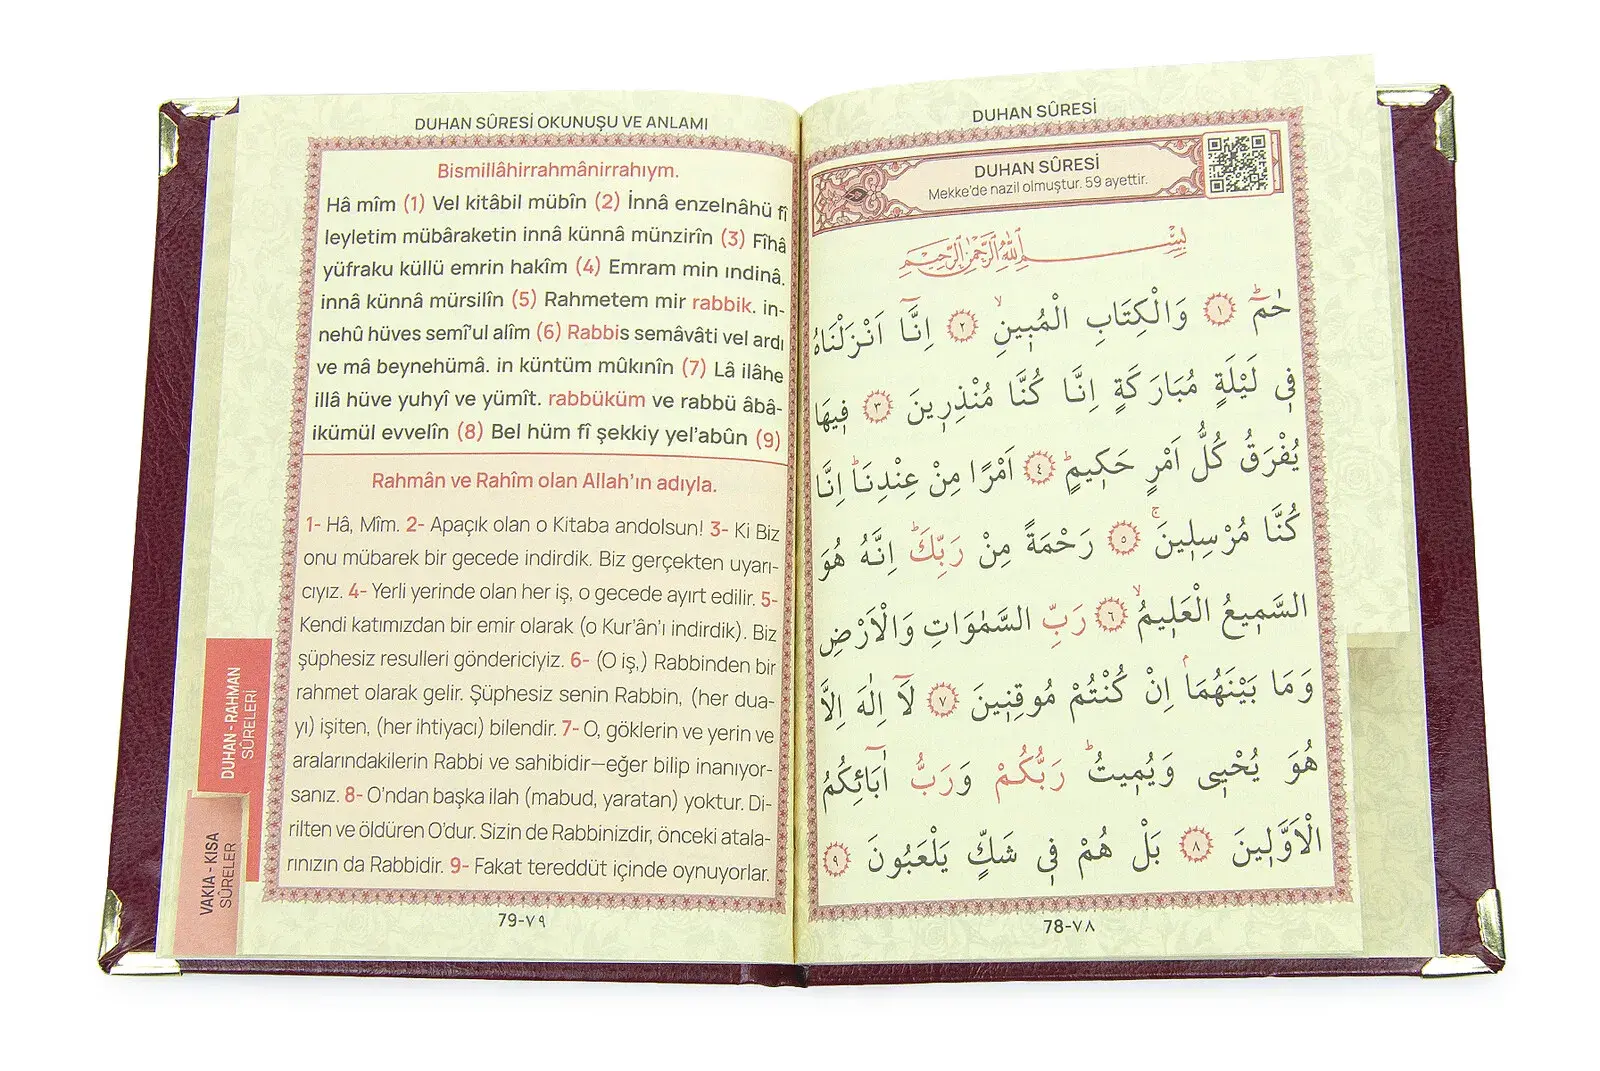 DUHAN SÛRESİ OKUNUŞU VE ANLAMI
Bismillâhirrahmânirrahıym.
Hâ mîm (1) Vel kitâbil mübîn (2) İnnâ enzelnâhü fî
leyletim mübâraketin innâ künnâ münzirîn (3) Fîhâ
yüfraku küllü emrin hakîm (4) Emram min ındinâ.
innâ künnâ mürsilîn (5) Rahmetem mir rabbik. in-
nehû hüves semî'ul alîm (6) Rabbis semâvâti vel ardı
ve mâ beynehümâ. in küntüm mûkınîn (7) Lâ ilâhe
illâ hüve yuhyî ve yümît. rabbüküm ve rabbü âbâ-
ikümül evvelîn (8) Bel hüm fî şekkiy yel'abûn (9)
Rahmân ve Rahîm olan Allah'ın adıyla.
1- Hâ, Mîm. 2- Apaçık olan o Kitaba andolsun! 3- Ki Biz
onu mübarek bir gecede indirdik. Biz gerçekten uyarı-
cıyız. 4- Yerli yerinde olan her iş, o gecede ayırt edilir. 5-
Kendi katımızdan bir emir olarak (o Kur'ân'ı indirdik). Biz
şüphesiz resulleri göndericiyiz. 6- (O iş,) Rabbinden bir
rahmet olarak gelir. Şüphesiz senin Rabbin, (her dua-
yı) işiten, (her ihtiyacı) bilendir. 7- O, göklerin ve yerin ve
aralarındakilerin Rabbi ve sahibidir—eğer bilip inanıyor-
sanız. 8- O'ndan başka ilah (mabud, yaratan) yoktur. Di-
rilten ve öldüren O'dur. Sizin de Rabbinizdir, önceki atala-
rınızın da Rabbidir. 9- Fakat tereddüt içinde oynuyorlar.
79-٧٩
DUHAN - RAHMAN
SÛRELERİ
VAKIA - KISA
SÛRELER
DUHAN SÛRESİ
DUHAN SÛRESİ
Mekke'de nazil olmuştur. 59 ayettir.
بِسْمِ اللّٰهِ الرَّحْمٰنِ الرَّحِيمِ
حٰمٓ ۚ ﴿١﴾ وَالْكِتَابِ الْمُبٖينِۙ ﴿٢﴾ اِنَّٓا اَنْزَلْنَاهُ
فٖي لَيْلَةٍ مُبَارَكَةٍ اِنَّا كُنَّا مُنْذِرٖينَ ﴿٣﴾ فٖيهَا
يُفْرَقُ كُلُّ اَمْرٍ حَكٖيمٍۜ ﴿٤﴾ اَمْرًا مِنْ عِنْدِنَاۜ اِنَّا
كُنَّا مُرْسِلٖينَۚ ﴿٥﴾ رَحْمَةً مِنْ رَبِّكَۜ اِنَّهُ هُوَ
السَّمٖيعُ الْعَلٖيمُۙ ﴿٦﴾ رَبِّ السَّمٰوَاتِ وَالْاَرْضِ
وَمَا بَيْنَهُمَاۢ اِنْ كُنْتُمْ مُوقِنٖينَ ﴿٧﴾ لَٓا اِلٰهَ اِلَّا
هُوَ يُحْيٖي وَيُمٖيتُۜ رَبُّكُمْ وَرَبُّ اٰبَٓائِكُمُ
الْاَوَّلٖينَ ﴿٨﴾ بَلْ هُمْ فٖي شَكٍّ يَلْعَبُونَ ﴿٩﴾
78-٧٨